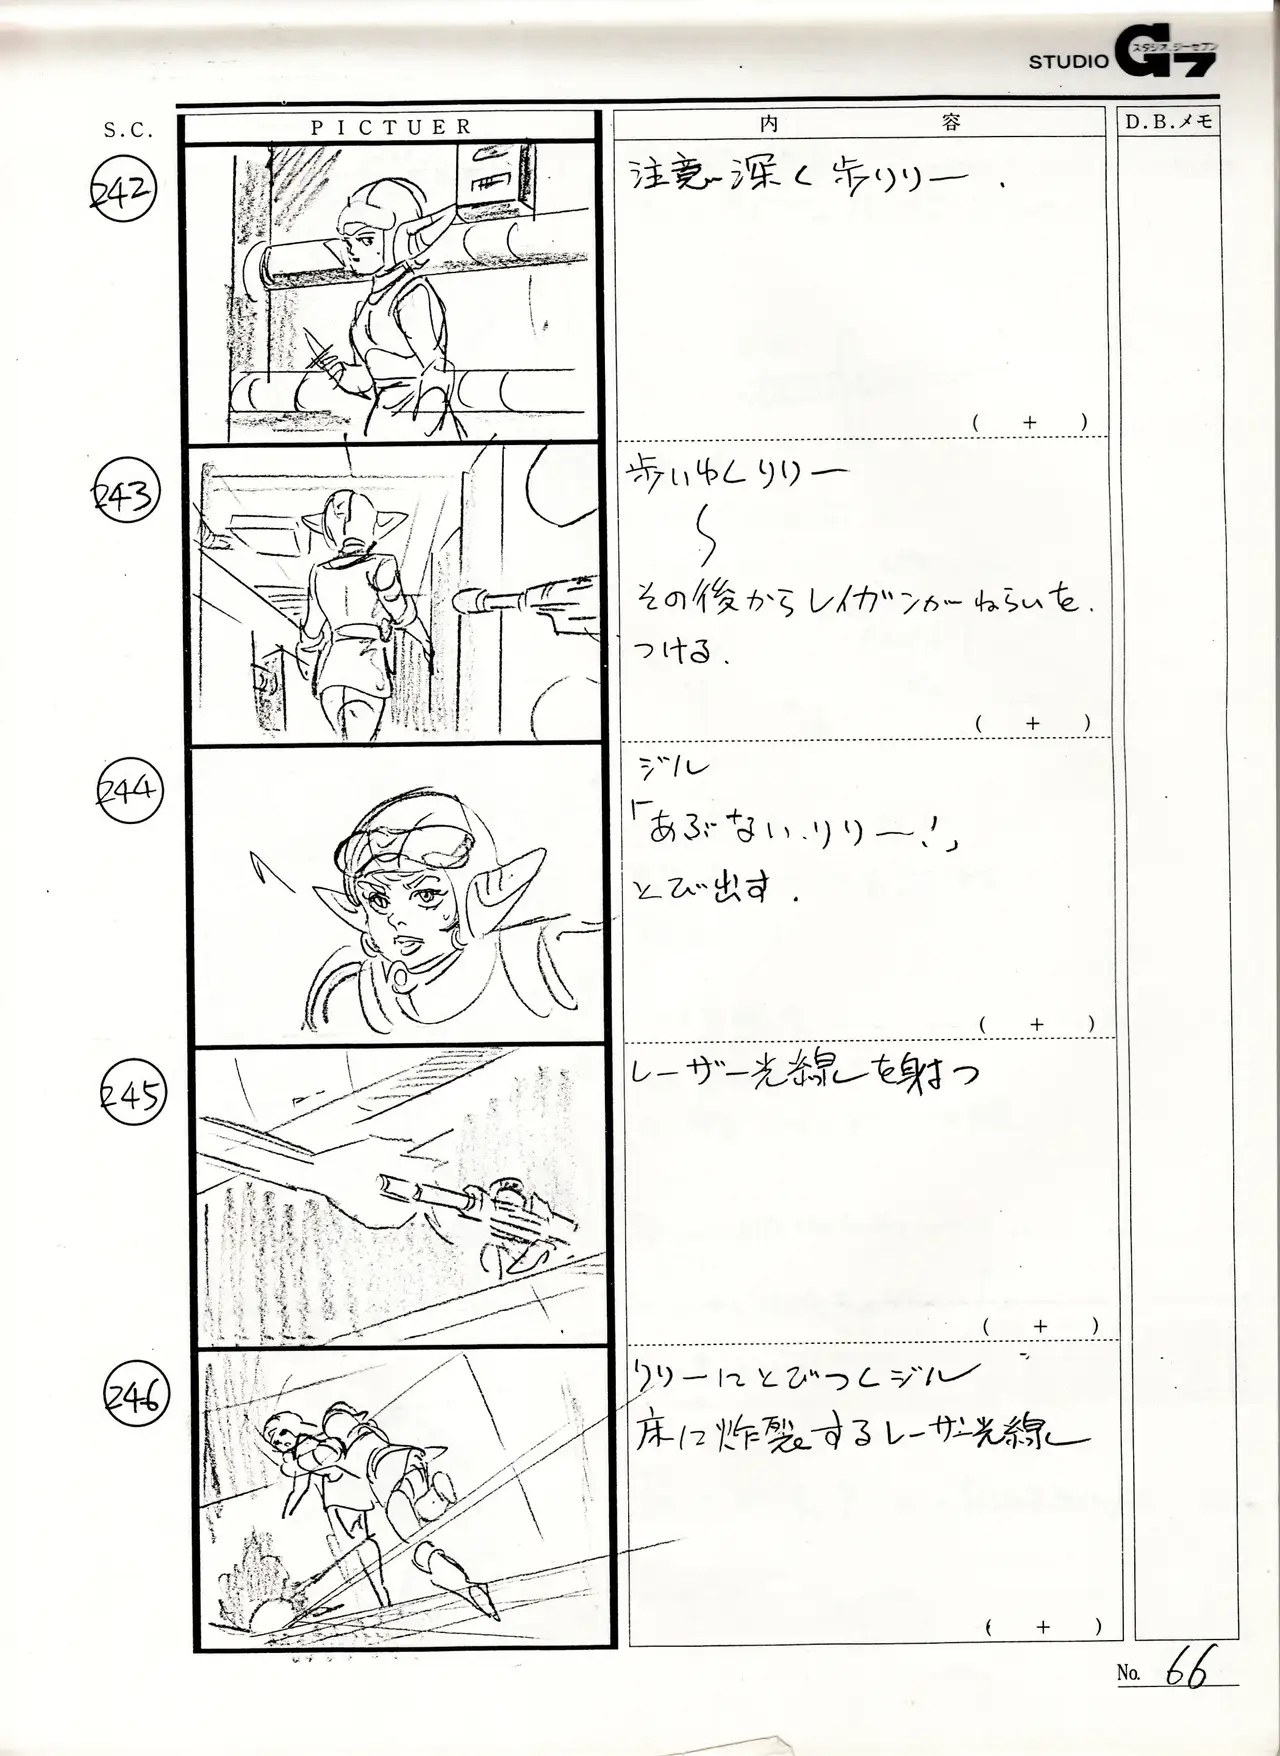 STUDIO G7
スタジオ・ジーセブン
S.C. PICTUER 内容 D.B.メモ
242 注意深く歩くリリー.
( + )
243 歩いゆくリリー
その後からレイガンがねらいを.
つける.
( + )
244 ジル
「あぶない、リリー!」
とび出す.
( + )
245 レーザー光線を射つ
( + )
246 リリーにとびつくジル
床に炸裂するレーザー光線
( + )
No. 66